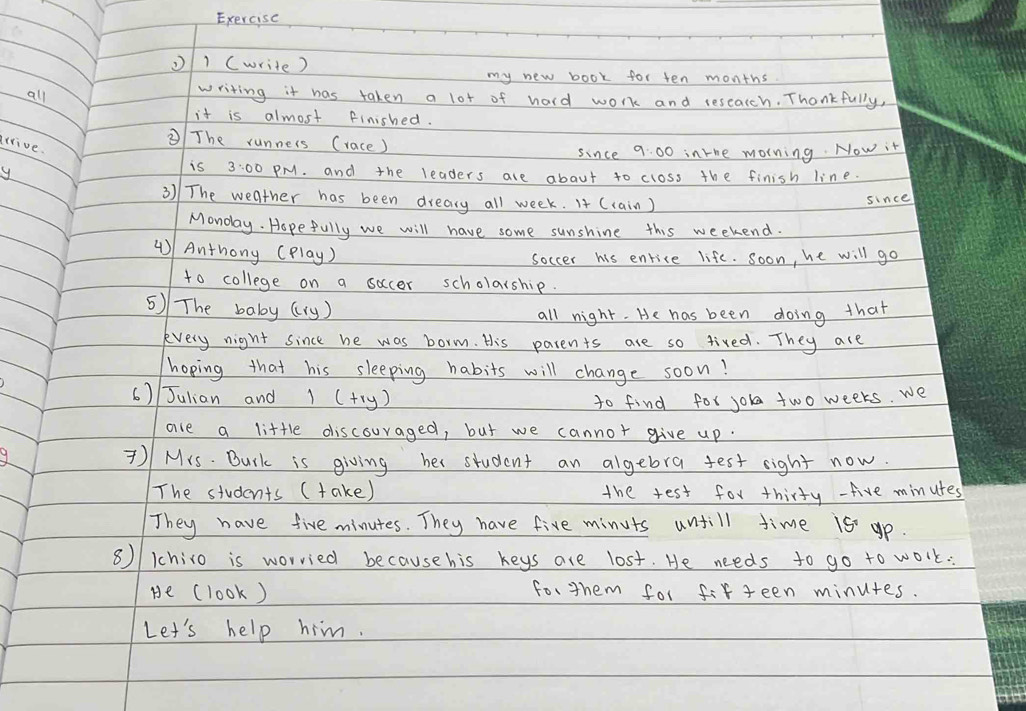 Exercise
1) 1 (write) my new book for ten months.
writing it has taken a lot of hard work and research. Thankfully,
all
it is almost finished.
2) The runners (race) since 9:00 in the morning. Now it
arrive.
is 3:00 PM. and the leaders are about to closs the finish line.
y
3) The weather has been dreary all week. It (rain) since
Monday. Hopefully we will have some sunshine this weekend.
4) Anthony (Play) soccer his entire life. Soon, he will go
to college on a soccer scholarship.
5) The baby (cry) all night. He has been doing that
every night since he was born. His parents are so tired. They are
hoping that his sleeping habits will change soon!
6) Julian and 1 (try) to find for job two weeks. we
are a little discouraged, but we cannot give up.
g
7) Mrs. Burk is giving her student an algebra test right now.
The students (take) the test for thirty-five minutes
They have five minutes. They have five minuts untill time is up.
8) Ichiro is worried because his keys are lost. He needs to go to work.
He (look) for them for fifteen minutes.
Let's help him.